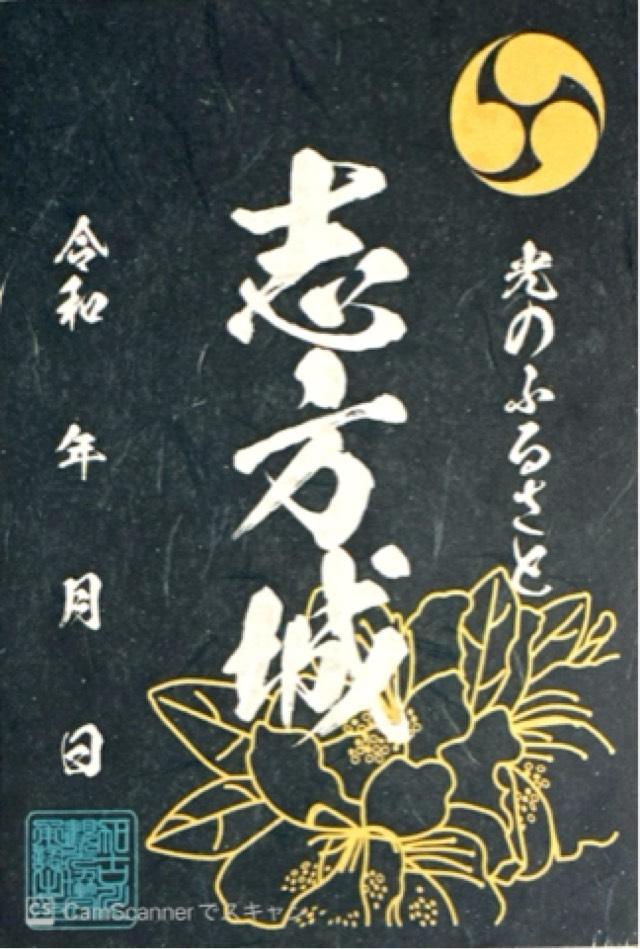 光のふるさと
志方城
令和 年 月 日
CS CamScannerでスキャン